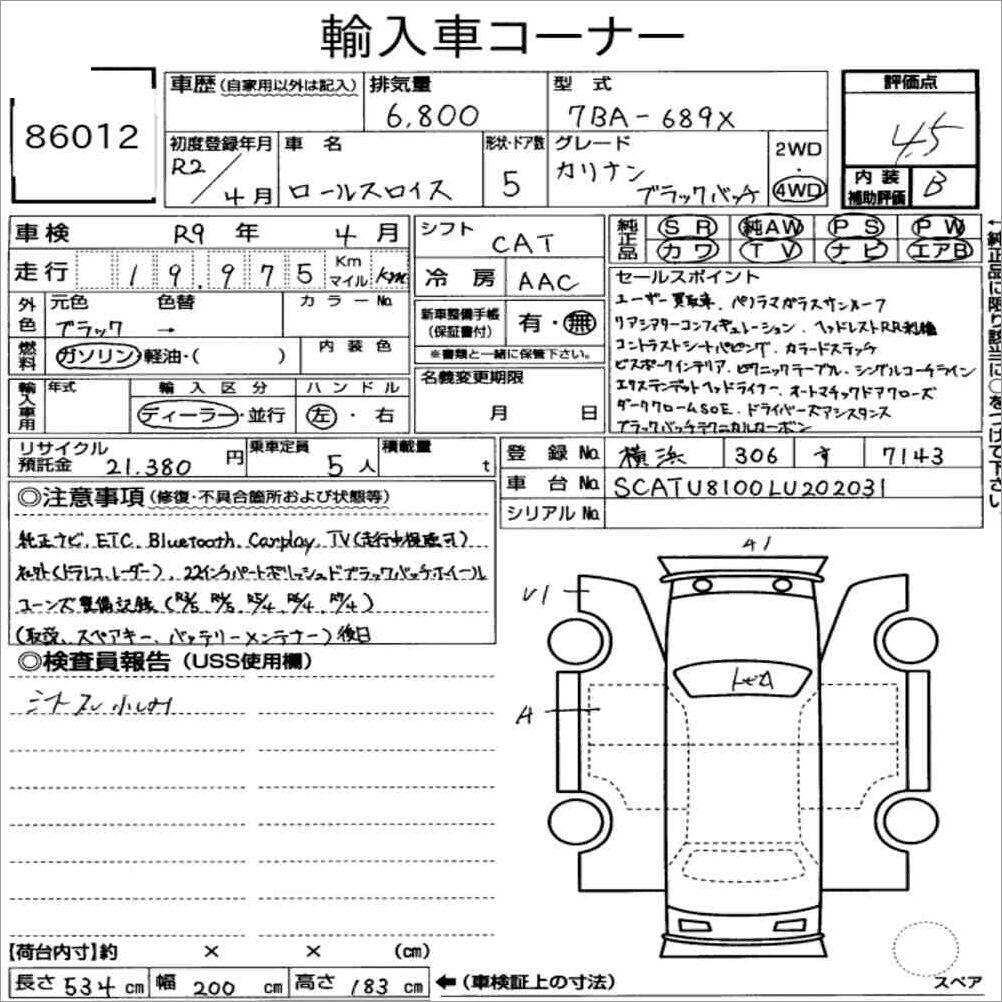 輸入車コーナー
86012
車歴 (自家用以外は記入)
排気量
6,800
型 式
7BA-689X
評価点
4.5
初度登録年月
R2/4月
車 名
ロールスロイス
形状・ドア数
5
グレード
カリナン
ブラックバッヂ
2WD
・
4WD
内 装
補助評価
B
車検
R9 年 4 月
走行
19,975
Km
マイル
km
外色
元色
ブラック
色替
→
カラーNo.
燃料
ガソリン・軽油・( )
内 装 色
輸入車用
年式
輸 入 区 分
ディーラー・並行
ハ ン ド ル
左・右
シフト
CAT
冷 房
AAC
新車整備手帳
(保証書付)
有・無
※書類と一緒に保管下さい。
名義変更期限
月 日
純正品
SR 純AW PS PW
カワ TV ナビ エアB
←純正品に限り該当に○をつけて下さい
セールスポイント
ユーザー買取車、パノラマガラスサンルーフ
リアシアターコンフィギュレーション、ヘッドレストRR刺繍
コントラストシートパイピング、カラードステッチ
ビスポークインテリア、ピクニックテーブル、シングルコーチライン
エクステンデットヘッドライナー、オートマチックドアクローズ
ダーククロームSOE、ドライバーズアシスタンス
ブラックバッヂテクニカルカーボン
リサイクル
預託金
21,380 円
乗車定員
5 人
積載量
t
登 録 No.
横浜 306 す 7143
車 台 No.
SCATU8100LU202031
シリアル No.
◎注意事項 (修復・不具合箇所および状態等)
純正ナビ、ETC、Bluetooth、Carplay、TV(走行中視聴可)
社外(ドラレコ、レーダー)、22インチパートポリッシュドブラックバッヂホイール
コーンズ整備記録(R3/5、R4/5、R5/4、R6/4、R7/4)
(取説、スペアキー、バッテリーメンテナー)後日
◎検査員報告 (USS使用欄)
A1
U1
A
【荷台内寸】約 × × (cm)
長さ 534 cm 幅 200 cm 高さ 183 cm
←(車検証上の寸法)
スペア